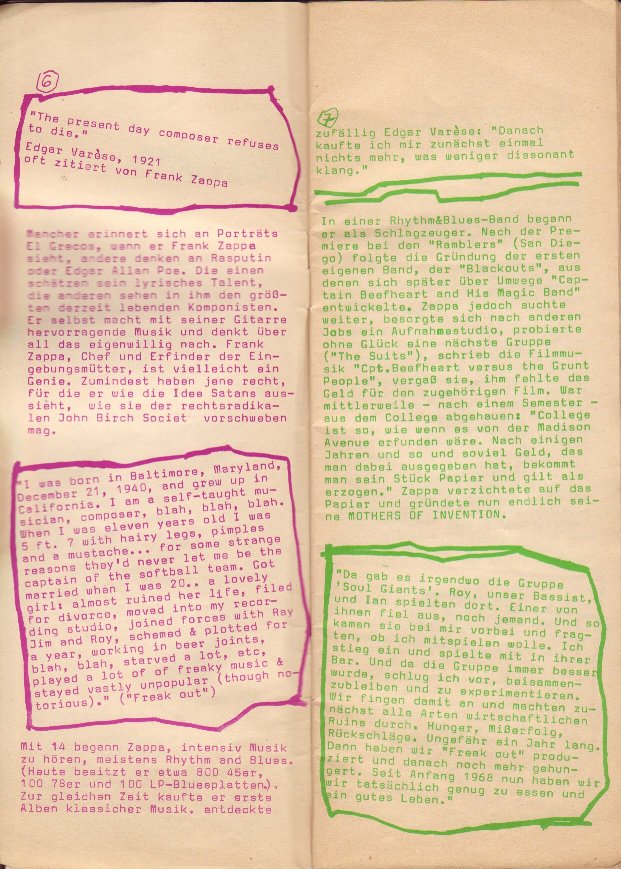 6
"The present day composer refuses
to die."
Edgar Varèse, 1921
oft zitiert von Frank Zappa
Mancher erinnert sich an Porträts
El Grecos, wenn er Frank Zappa
sieht, andere denken an Rasputin
oder Edgar Allan Poe. Die einen
schätzen sein lyrisches Talent,
die anderen sehen in ihm den größ-
ten derzeit lebenden Komponisten.
Er selbst macht mit seiner Gitarre
hervorragende Musik und denkt über
all das eigenwillig nach. Frank
Zappa, Chef und Erfinder der Ein-
gebungsmütter, ist vielleicht ein
Genie. Zumindest haben jene recht,
für die er wie die Idee Satans aus-
sieht, wie sie der rechtsradika-
len John Birch Societ vorschweben
mag.
"I was born in Baltimore, Maryland,
December 21, 1940, and grew up in
California. I am a self-taught mu-
sician, composer, blah, blah, blah.
When I was eleven years old I was
5 ft. 7 with hairy legs, pimples
and a mustache... for some strange
reasons they'd never let me be the
captain of the softball team. Got
married when I was 20.. a lovely
girl: almost ruined her life, filed
for divorce, moved into my recor-
ding studio, joined forces with Ray
Jim and Roy, schemed & plotted for
a year, working in beer joints,
blah, blah, starved a lot, etc,
played a lot of of freaky music &
stayed vastly unpopular (though no-
torious)." ("Freak out")
Mit 14 begann Zappa, intensiv Musik
zu hören, meistens Rhythm and Blues.
(Heute besitzt er etwa 800 45er,
100 78er und 100 LP-Bluesplatten).
Zur gleichen Zeit kaufte er erste
Alben klassischer Musik, entdeckte
7
zufällig Edgar Varèse: "Danach
kaufte ich mir zunächst einmal
nichts mehr, was weniger dissonant
klang."
In einer Rhythm&Blues-Band begann
er als Schlagzeuger. Nach der Pre-
miere bei den "Ramblers" (San Die-
go) folgte die Gründung der ersten
eigenen Band, der "Blackouts", aus
denen sich später über Umwege "Cap-
tain Beefheart and His Magic Band"
entwickelte. Zappa jedoch suchte
weiter, besorgte sich nach anderen
Jobs ein Aufnahmestudio, probierte
ohne Glück eine nächste Gruppe
("The Suits"), schrieb die Filmmu-
sik "Cpt.Beefheart versus the Grunt
People", vergaß sie, ihm fehlte das
Geld für den zugehörigen Film. War
mittlerweile - nach einem Semester -
aus dem College abgehauen: "College
ist so, wie wenn es von der Madison
Avenue erfunden wäre. Nach einigen
Jahren und so und soviel Geld, das
man dabei ausgegeben hat, bekommt
man sein Stück Papier und gilt als
erzogen." Zappa verzichtete auf das
Papier und gründete nun endlich sei-
ne MOTHERS OF INVENTION.
"Da gab es irgendwo die Gruppe
'Soul Giants'. Roy, unser Bassist,
und Ian spielten dort. Einer von
ihnen fiel aus, noch jemand. Und so
kamen sie bei mir vorbei und frag-
ten, ob ich mitspielen wolle. Ich
stieg ein und spielte mit in ihrer
Bar. Und da die Gruppe immer besser
wurde, schlug ich vor, beisammen-
zubleiben und zu experimentieren.
Wir fingen damit an und machten zu-
nächst alle Arten wirtschaftlichen
Ruins durch. Hunger, Mißerfolg,
Rückschläge. Ungefähr ein Jahr lang.
Dann haben wir "Freak out" produ-
ziert und danach noch mehr gehun-
gert. Seit Anfang 1968 nun haben wir
wir tatsächlich genug zu essen und
ein gutes Leben."